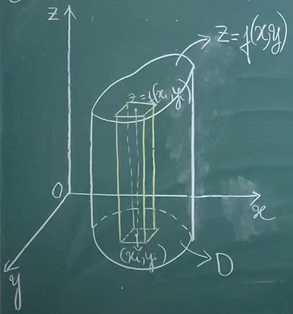 z
z=f(x,y)
z=f(xᵢ,yᵢ)
O
x
(xᵢ,yᵢ)
D
y